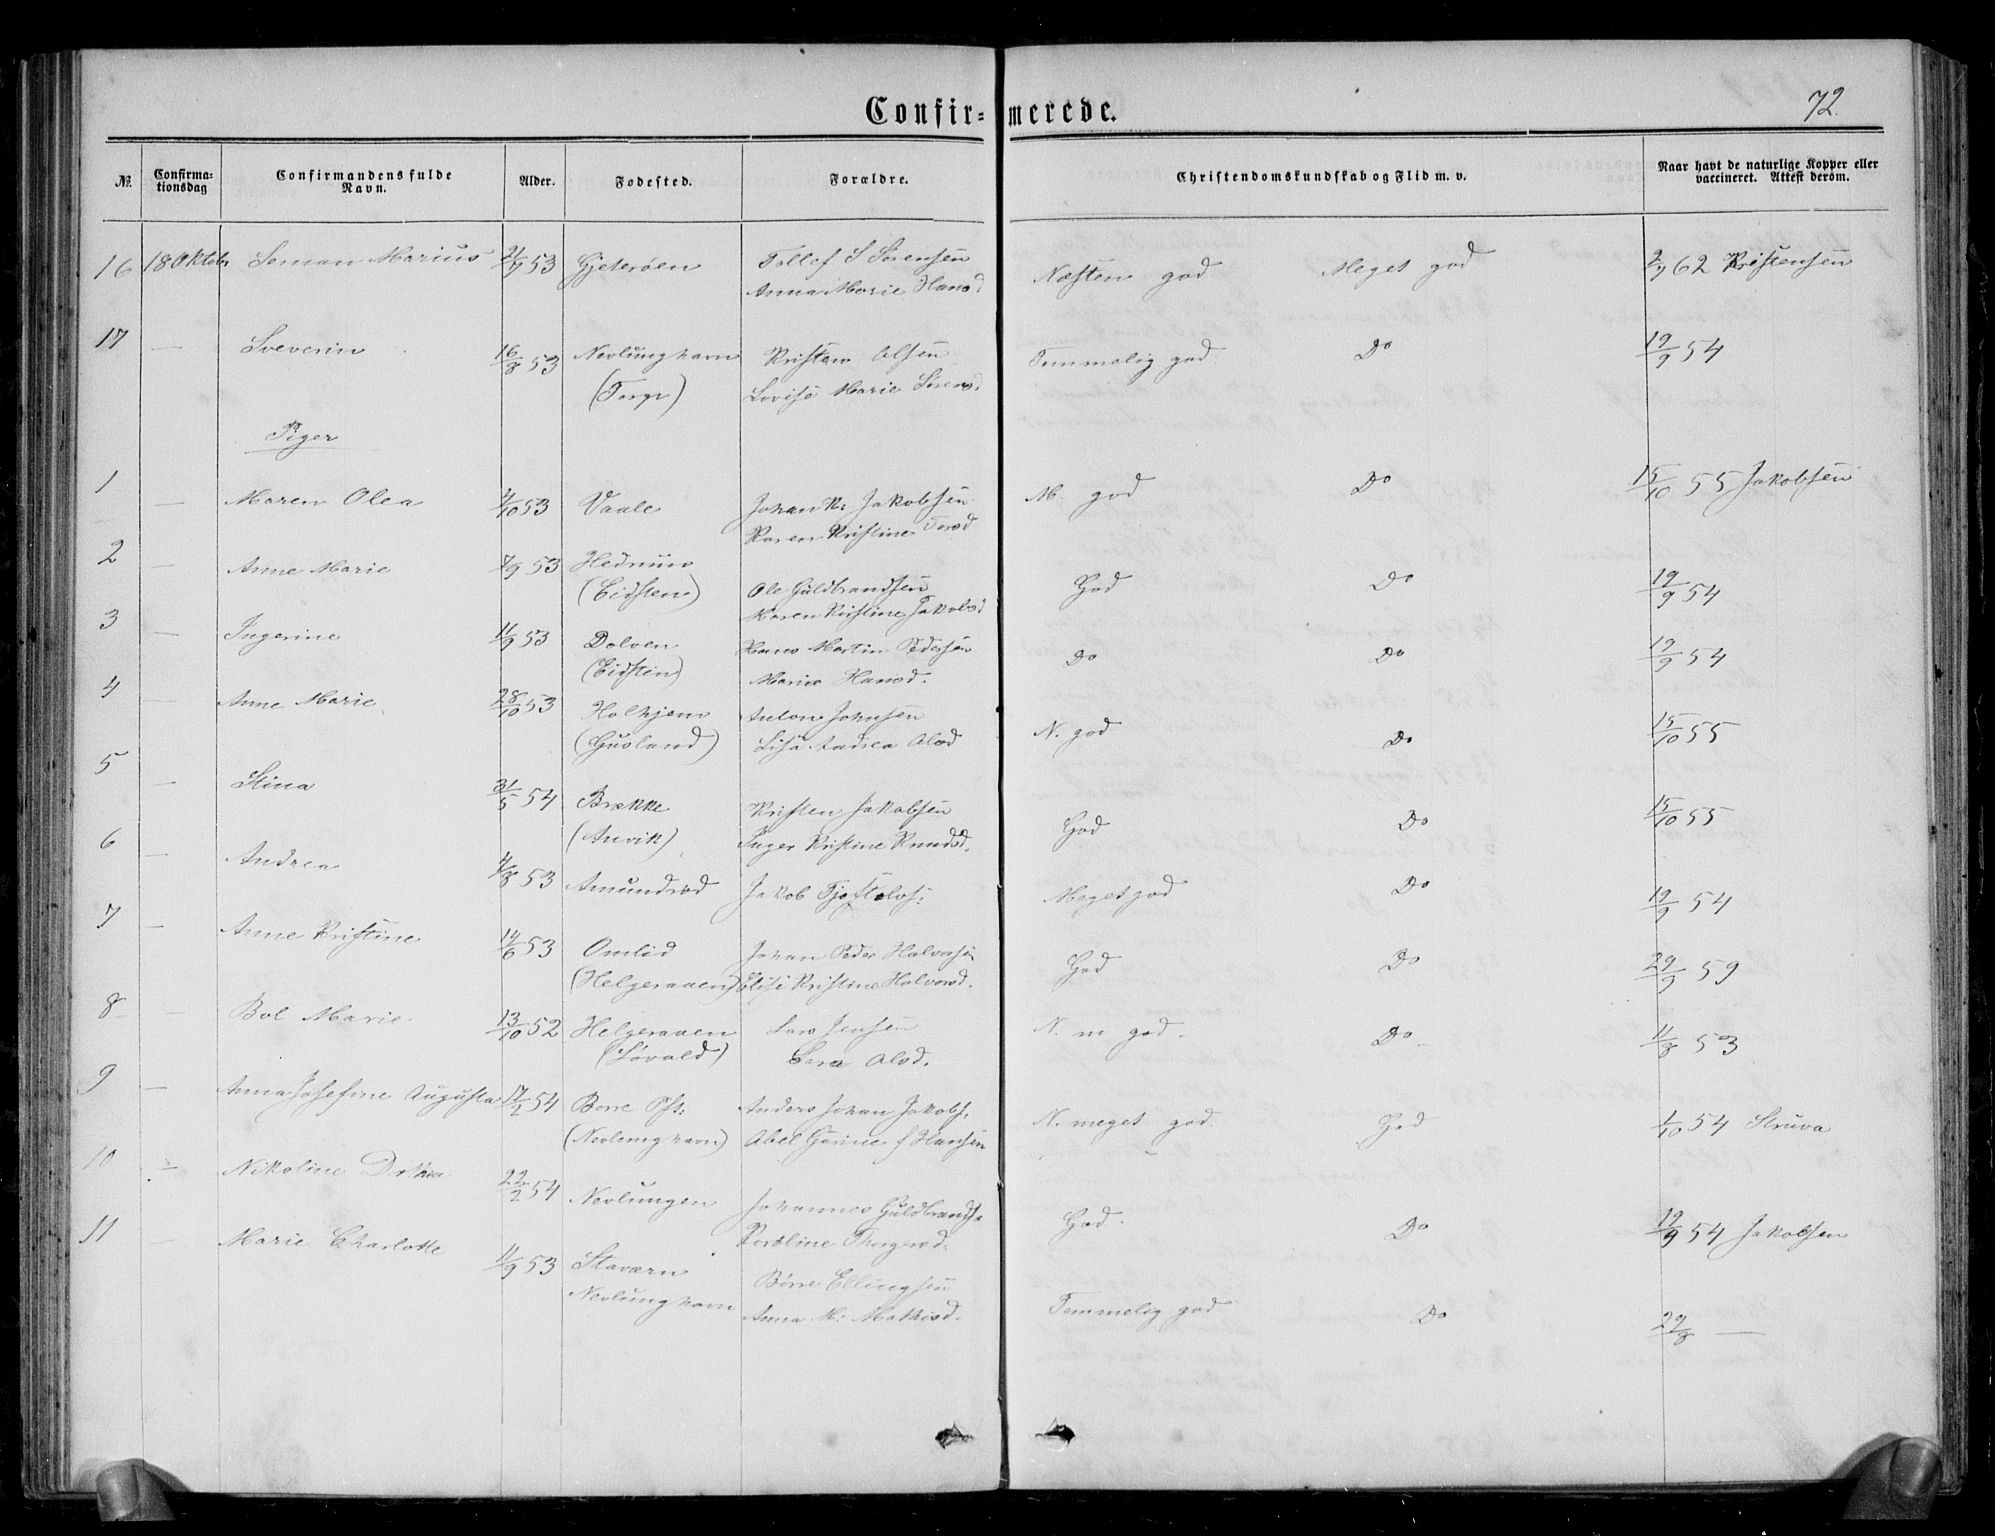 Confir= merede. 72.
№. Confirma- tionsdag Confirmandens fulde Navn. Alder. Fodested. Forældre. Christendomskundskab og Flid m. v. Naar havt de naturlige Kopper eller vaccineret. Attest derom.
16 18 Oktobr Soman Marius 21/7 53 Gjeterøen Tollef S Sörensen Næsten god Meget god 2/7 62 Kristensen
Anna Marie Hansd
17 — Severin 16/8 53 Nevlunghavn Kristen Olsen Temmelig god Do 19/9 54
(Torp) Lovise Marie Sörensd.
Piger
1 — Maren Olea 4/10 53 Vaale Johan K: Jakobsen M. god Do 15/10 55 Jakobsen
Karen Kristine Torsd
2 — Anne Marie 7/9 53 Hedrum Ole Guldbrandsen God Do 19/9 54
(Eidsten) Maren Kristine Jakobsd
3 — Ingerine 11/9 53 Dolven Hans Martin Pedersen Do Do 19/9 54
(Eidsten) Maria Hansd.
4 Anne Marie 28/10 53 Holhjem Anton Johnsen N. god Do 15/10 55
(Gusland) Lisa Andrea Olsd
5 — Stina 31/5 54 Brekke Kristen Jakobsen God Do 15/10 55
(Anvik) Inger Kristine Knudsd.
6 — Andrea 4/8 53 Amundrød Jakob Tjostolvs: Meget god Do 19/9 54
7 — Anne Kristine 14/6 53 Omlid Johan Peder Halvorsen God Do 29/9 59
(Helgeraaen) Elise Kristine Halvorsd.
8 — Bol Marie 13/10 52 Helgeraaen Lars Jensen N. m god. Do 11/8 53
(Løvald) Sara Olsd.
9 — Anna Josefine Augusta 17/2 54 Borre Pst: Anders Johan Jakobs. N. meget god. God 1/10 54 Struva
(Nevlunghavn) Abel Gurine f Hansen
10 — Nikoline Dthea 22/2 54 Nevlungen Johannes Guldbrands. God. Do 19/9 54 Jakobsen
Karoline Thorgersd.
11 — Marie Charlotte 11/9 53 Staværn Börre Ellingsen Temmelig god Do 29/8 —
Nevlunghavn Anna M: Mathisd.